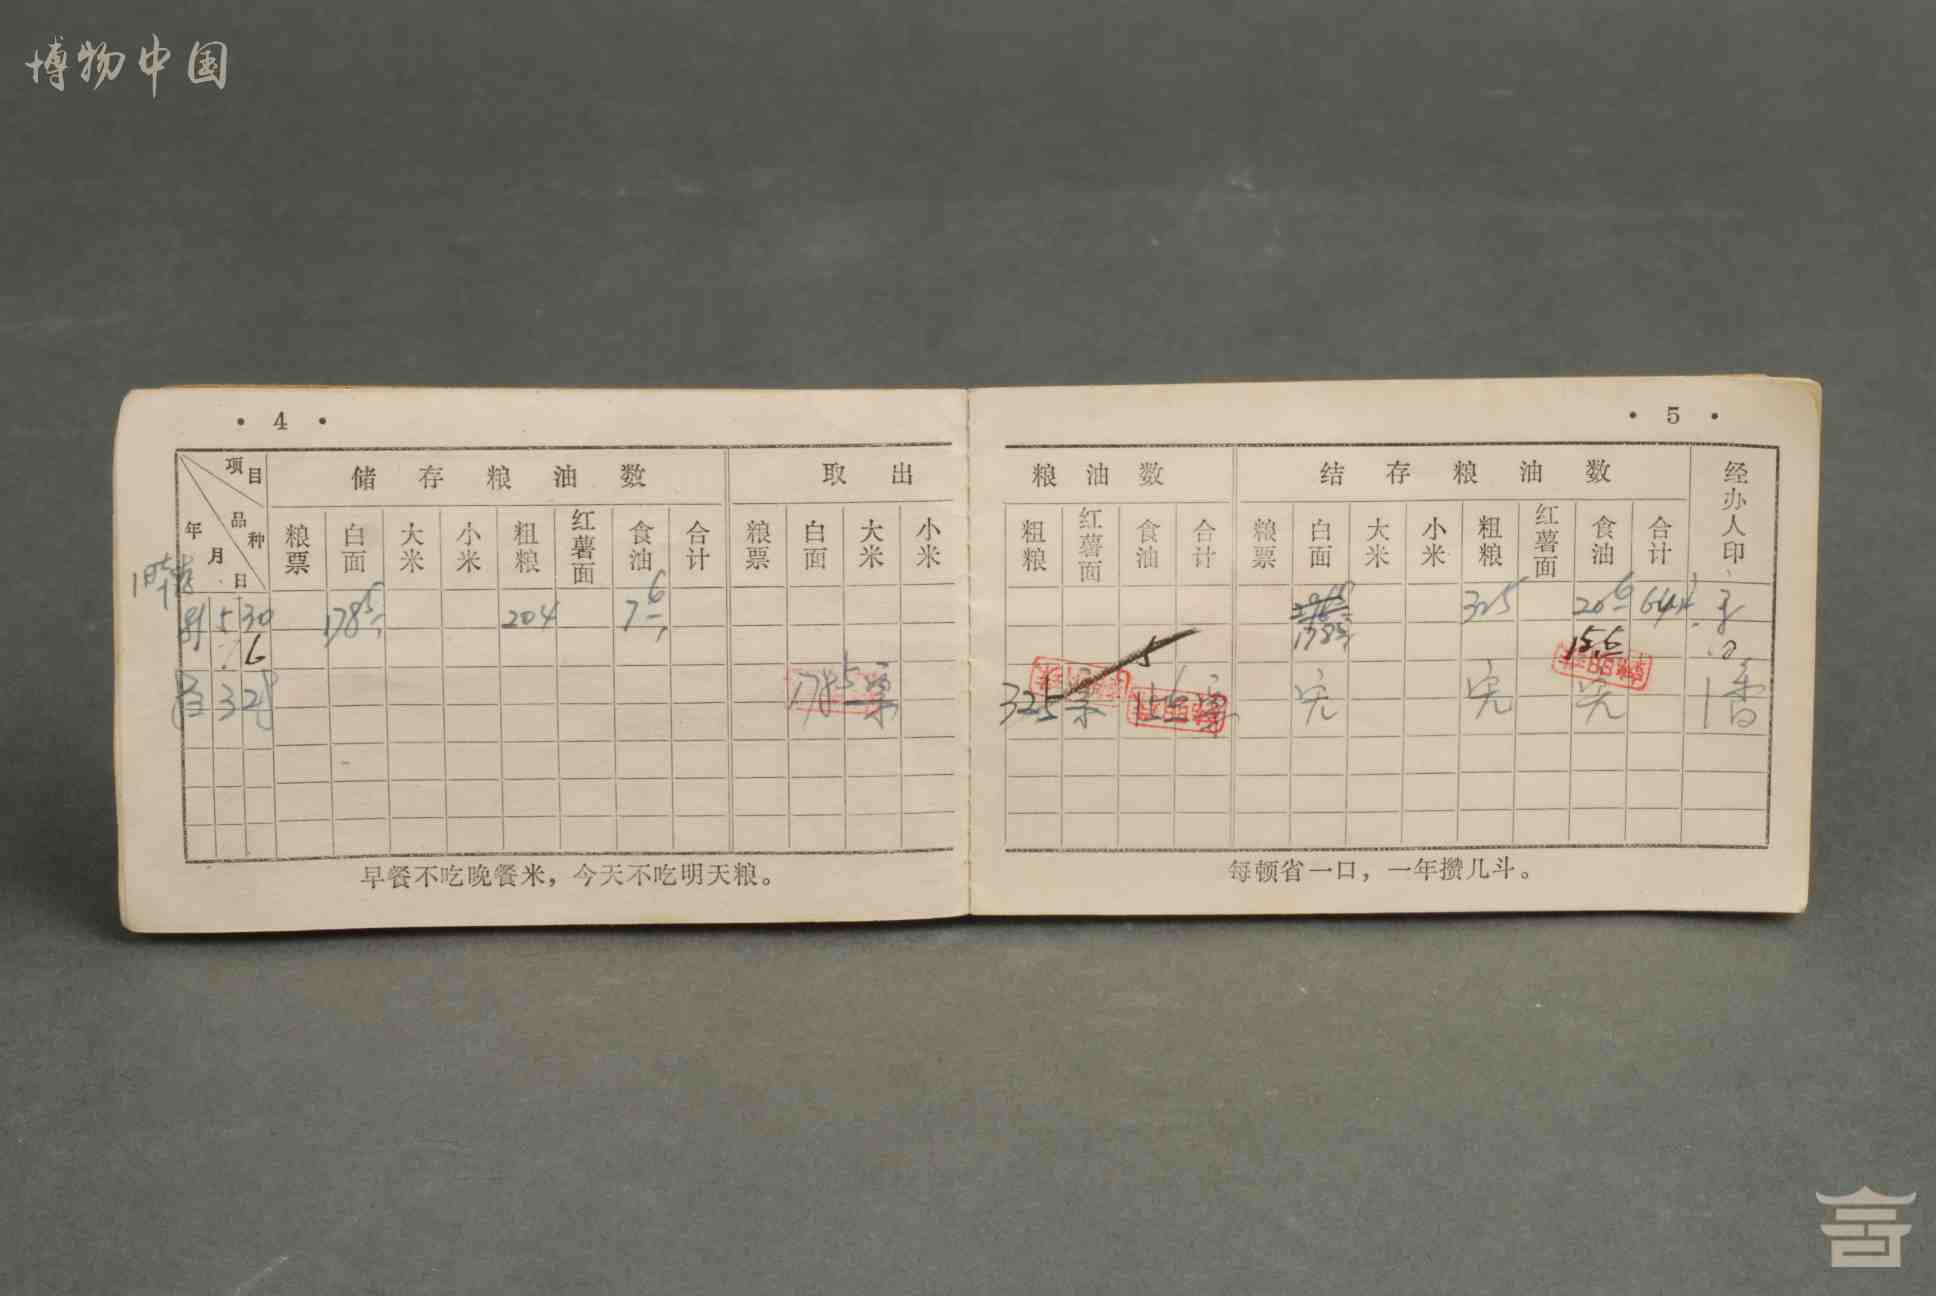 博物中国
· 4 ·
· 5 ·
项目 储存粮油数 取出 粮油数 结存粮油数 经办人印
品种
年 月 日 粮票 白面 大米 小米 粗粮 红薯面 食油 合计 粮票 白面 大米 小米 粗粮 红薯面 食油 合计 粮票 白面 大米 小米 粗粮 红薯面 食油 合计
5 30 178⁵ 204 7⁶ 325 20⁶
6 5 15.6
325 完 完 完
早餐不吃晚餐米，今天不吃明天粮。
每顿省一口，一年攒几斗。